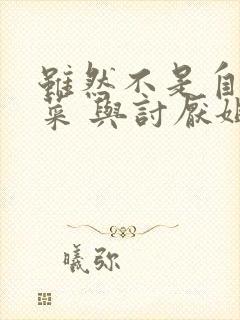 雖然不是自
菜 與討厭
曦弥